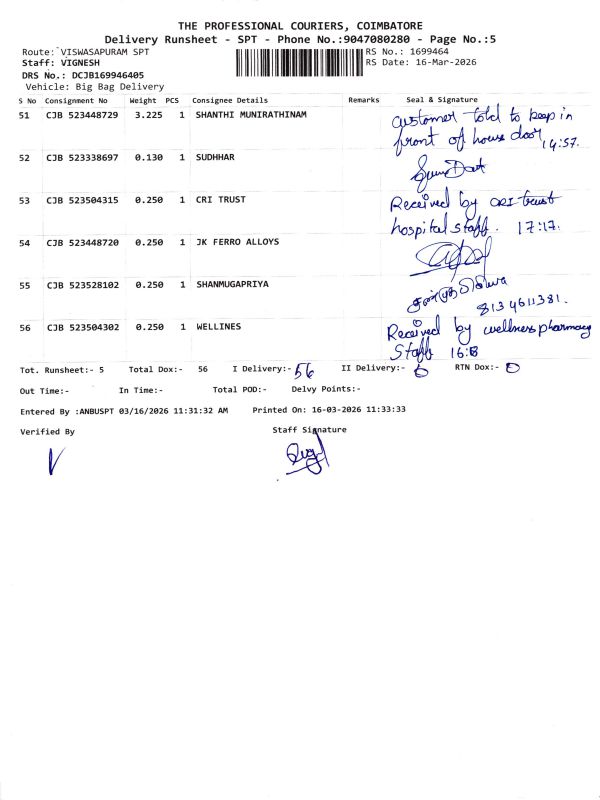 THE PROFESSIONAL COURIERS, COIMBATORE
Delivery Runsheet - SPT - Phone No.:9047080280 - Page No.:5
Route: VISWASAPURAM SPT
RS No.: 1699464
Staff: VIGNESH
RS Date: 16-Mar-2026
DRS No.: DCJB169946405
Vehicle: Big Bag Delivery
S No Consignment No Weight PCS Consignee Details Remarks Seal & Signature
51 CJB 523448729 3.225 1 SHANTHI MUNIRATHINAM
customer told to keep in
front of house door, 14:57.
52 CJB 523338697 0.130 1 SUDHHAR
53 CJB 523504315 0.250 1 CRI TRUST
Received by CRI trust
hospital staff. 17:17.
54 CJB 523448720 0.250 1 JK FERRO ALLOYS
55 CJB 523528102 0.250 1 SHANMUGAPRIYA
8134611381.
56 CJB 523504302 0.250 1 WELLINES
Received by wellness pharmacy
Staff
Tot. Runsheet:- 5 Total Dox:- 56 I Delivery:- 56 II Delivery:- 0 RTN Dox:- 0
Out Time:- In Time:- Total POD:- Delvy Points:-
Entered By :ANBUSPT 03/16/2026 11:31:32 AM Printed On: 16-03-2026 11:33:33
Verified By Staff Signature